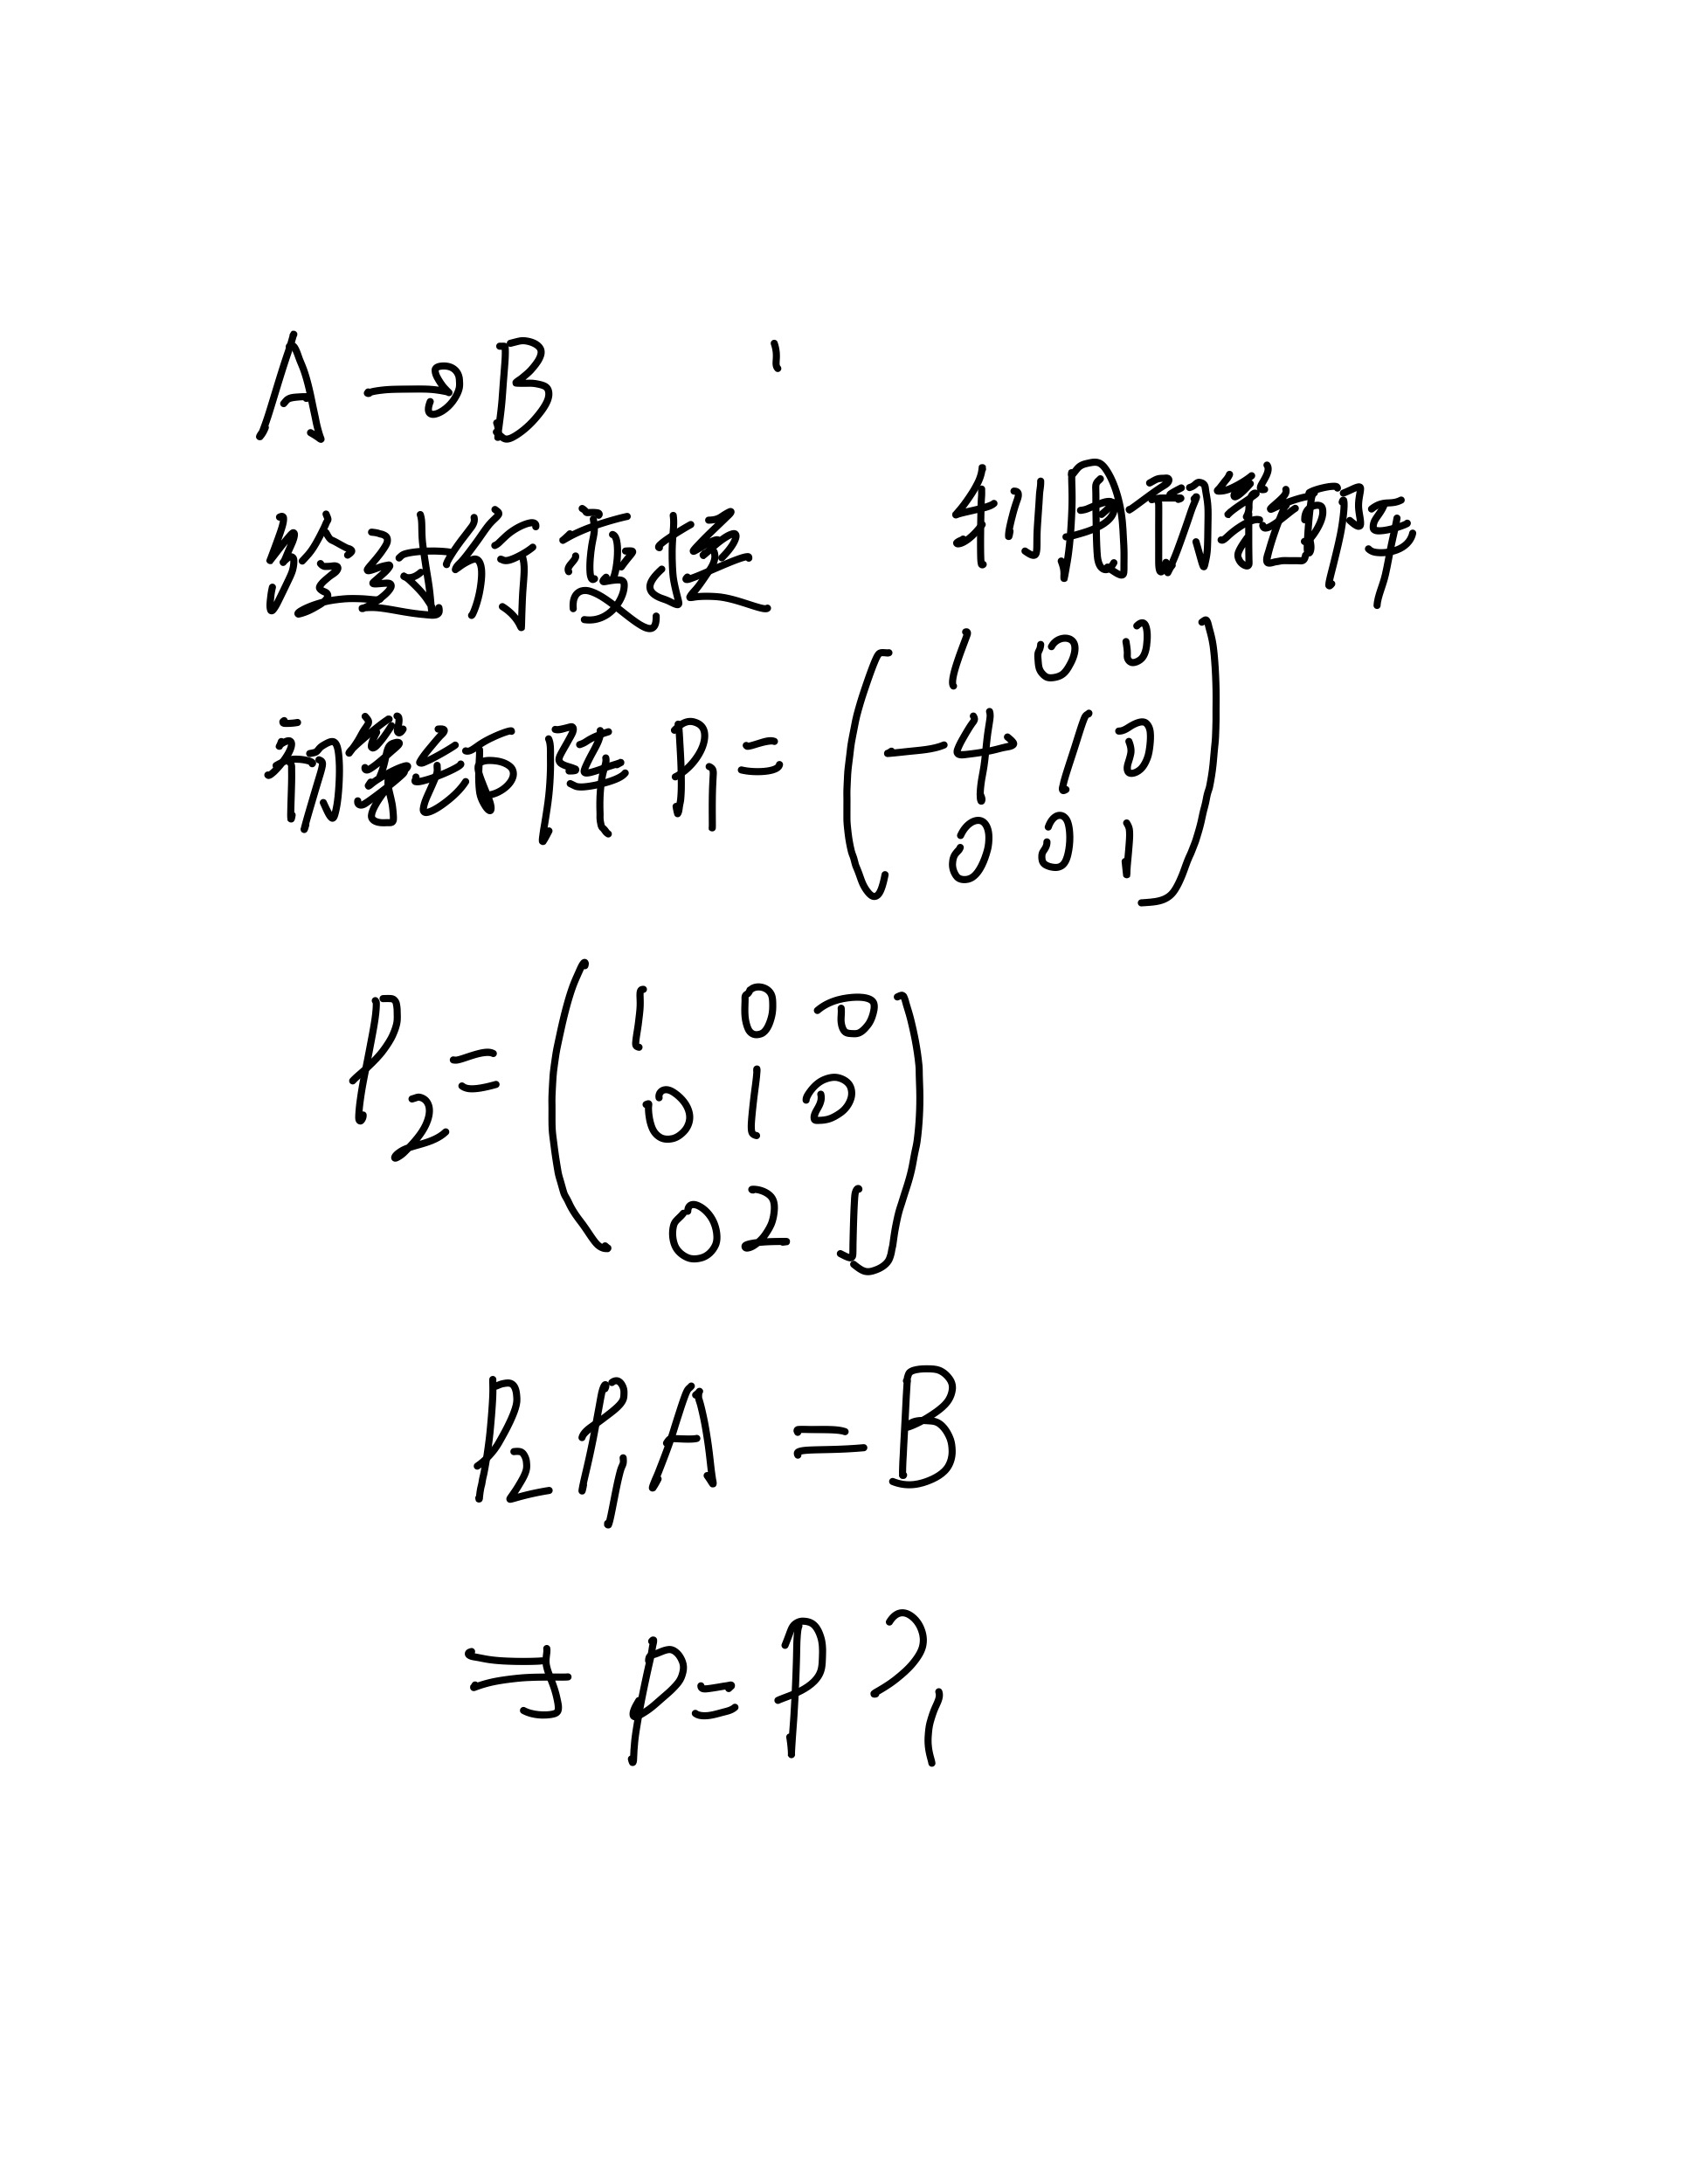 A → B
经过行变换
利用初等矩阵
初等矩阵 P1 =
( 1 0 0
-4 1 0
0 0 1 )
P2 = ( 1 0 0
0 1 0
0 2 1 )
P2 P1 A = B
⇒ P = P2 1